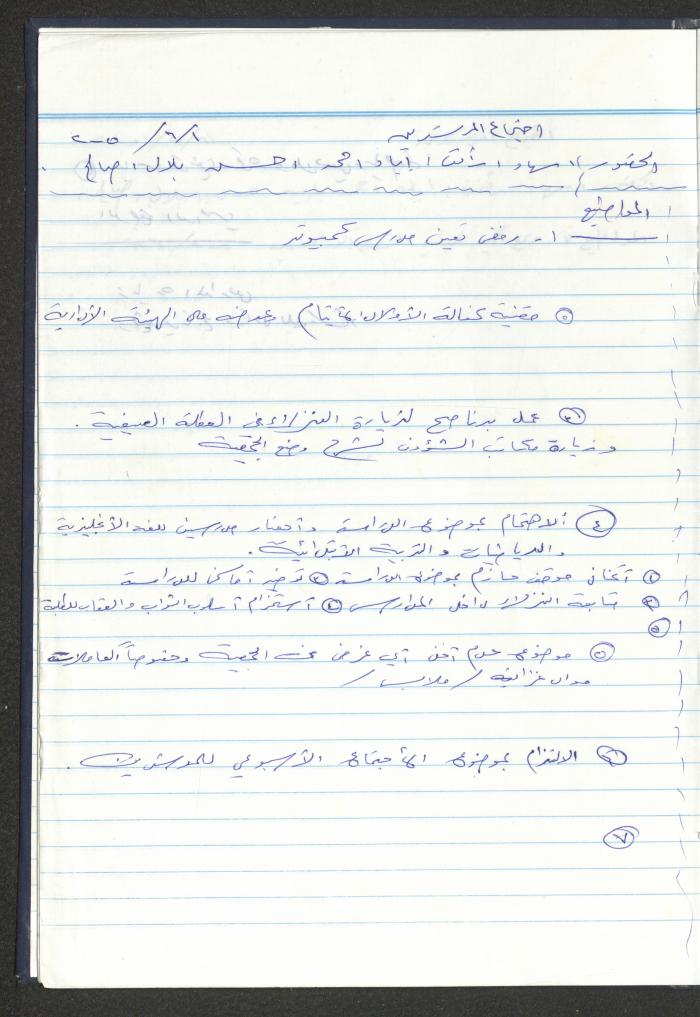 اجتماع المرشدين ١/٦/٢٠٠٥
الحضور / سهاد ، رأفت ، اياد ، محمد ، حسن ، بلال ، صالح .
المواضيع
١- رفض تعين مدرس كمبيوتر
قضية كفالة الأولاد الأيتام وعرضه على الهيئة الأدارية
٣ عمل برنامج لزيارة النزلاء في العطلة الصيفية .
وزيارة مكاتب الشؤون لشرح وضع الجمعية
٤ ألاهتمام بموضوع الدراسة وأحضار مدرسين للغة الأنجليزية
والرياضيات والتربية الأبتدائية .
١ أتخاذ موقف حازم بموضوع الدراسة ٢ توفير أماكن للدراسة
٣ متابعة النزلاء داخل المدارس ٤ أستخدام أسلوب الثواب والعقاب للطلبة
٥
٥ موضوع عدم أخذ أي غرض من الجمعية وخصوصاً العاملات
مواد غذائية / ملابس /
٦ الالتزام بموضوع الأجتماع الأسبوعي للمرشدين .
٧